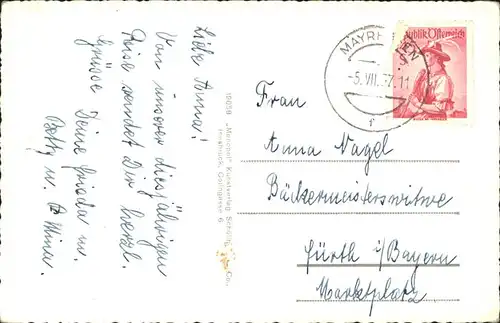 Liebe Anna!
Von unserer diesjährigen
Reise sendet Dir herzl.
Grüsse Deine Frieda u.
Betty u. Mina.
10059 „Monopol" Kunstverlag
Innsbruck, 6
Co.
MAYRHOFEN
-5.VII.57.11
f
Republik Österreich
Frau
Anna Nagel
Bäckermeisterswitwe
Fürth i/Bayern
Marktplatz